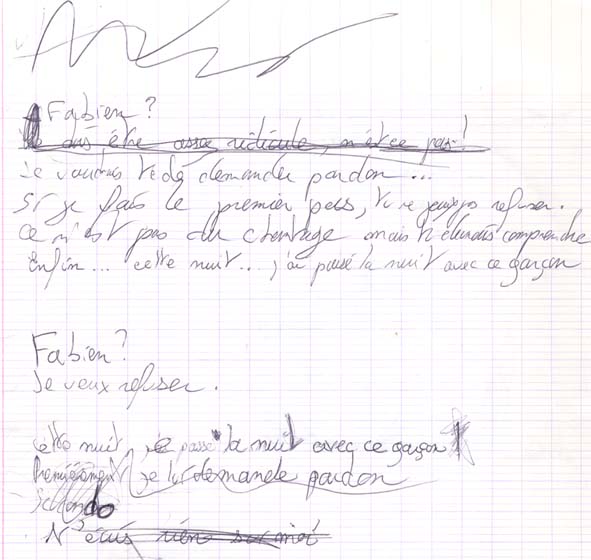 Fabien ?
dois être assez ridicule, n'est ce pas !
Je voudrais te demander pardon ...
Si je fais le premier pas, tu ne peux pas refuser.
Ce n'est pas du chantage mais tu devrais comprendre
Enfin ... cette nuit ... j'ai passé la nuit avec ce garçon
Fabien ?
Je veux refuser.
cette nuit, passé la nuit avec ce garçon
Premièrement je lui demande pardon
do
N'écris rien sur moi